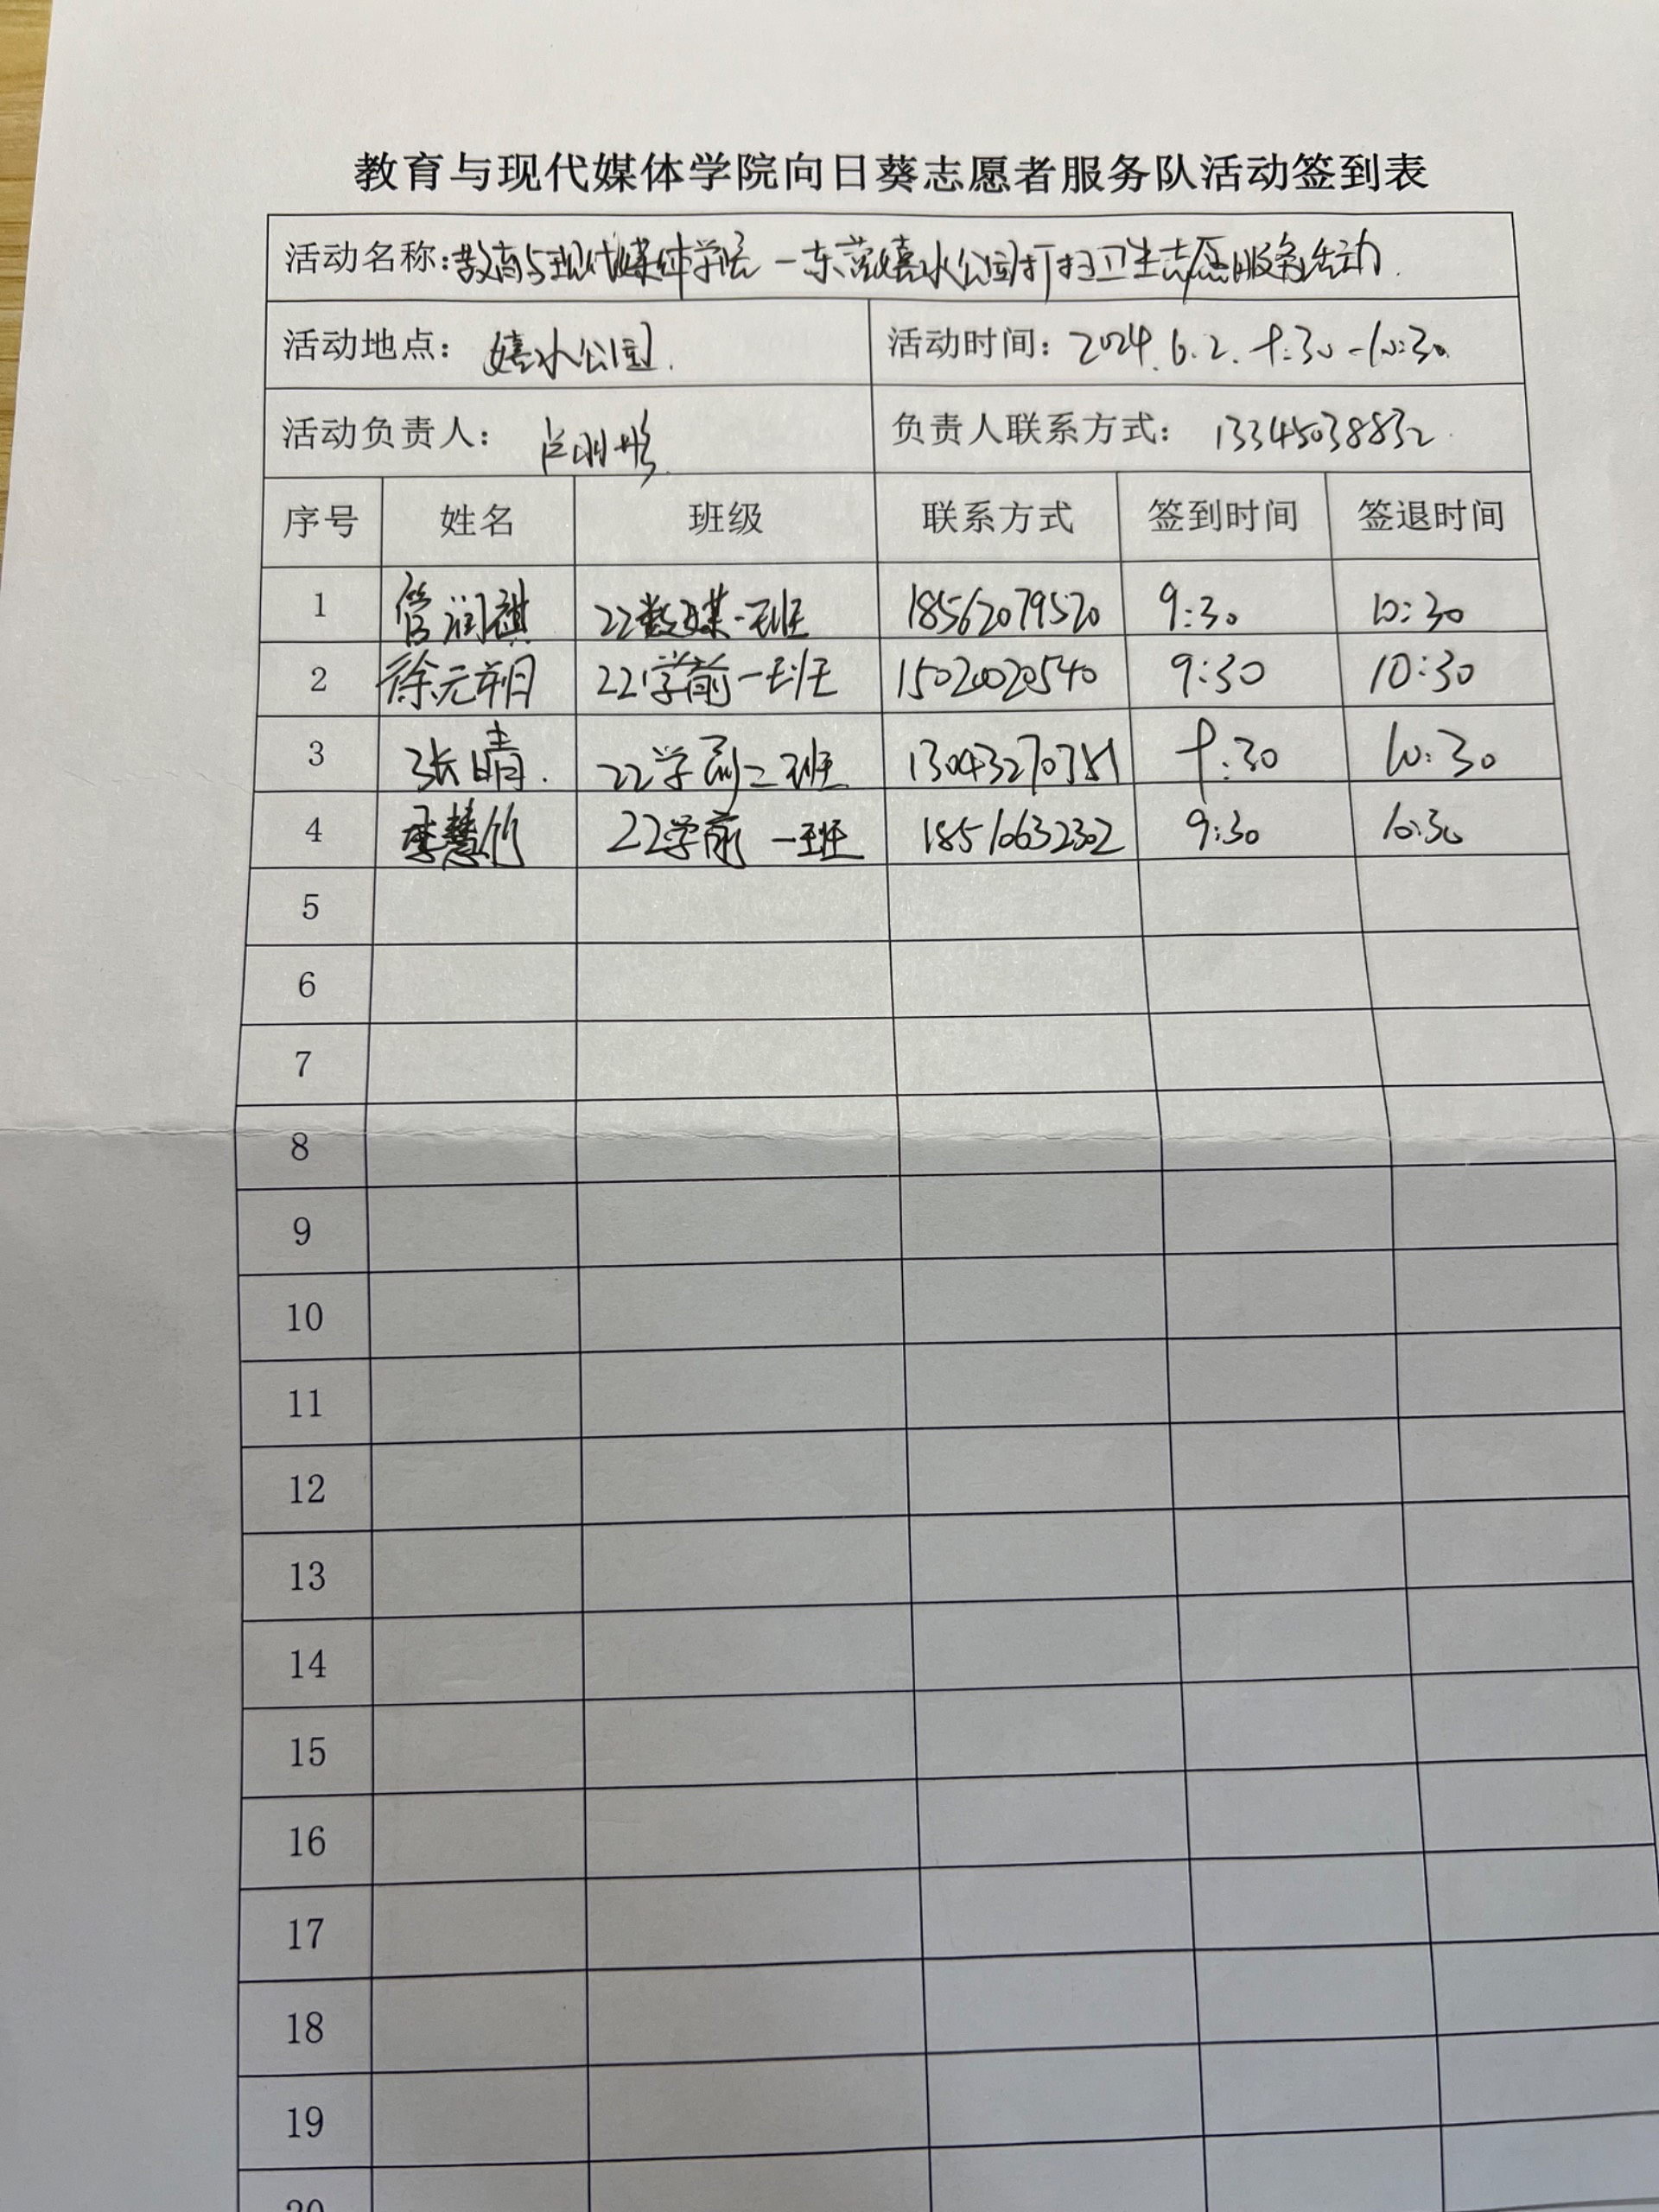 教育与现代媒体学院向日葵志愿者服务队活动签到表
活动名称:教育与现代媒体学院-东营嬉水公园打扫卫生志愿服务活动.
活动地点: 嬉水公园. 活动时间: 2024.6.2. 9:30-10:30
活动负责人: 负责人联系方式: 13345038832
序号 姓名 班级 联系方式 签到时间 签退时间
1 管润祺 22数媒一班 18562079520 9:30 10:30
2 徐元朔 22学前一班 15020020540 9:30 10:30
3 张晴. 22学前二班 9:30 10:30
4 李慧竹 22学前一班 18510632302 9:30 10:30
5
6
7
8
9
10
11
12
13
14
15
16
17
18
19
20